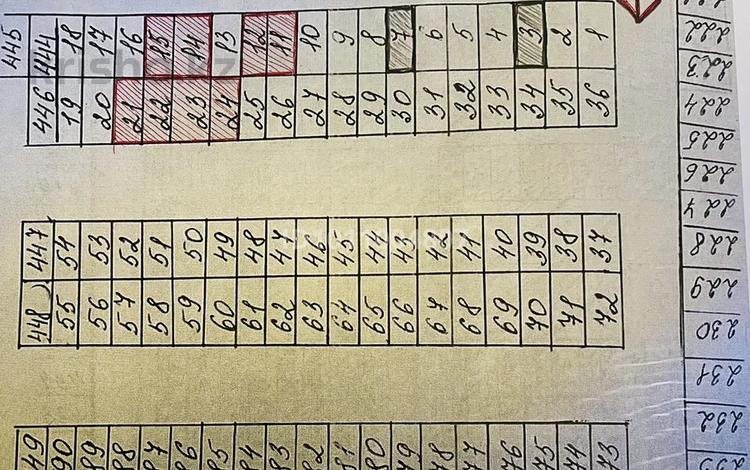 445 444 18 17 16 15 14 13 12 11 10 9 8 7 6 5 4 3 2 1
446 19 20 21 22 23 24 25 26 27 28 29 30 31 32 33 34 35 36
447 54 53 52 51 50 49 48 47 46 45 44 43 42 41 40 39 38 37
448 55 56 57 58 59 60 61 62 63 64 65 66 67 68 69 70 71 72
222
223
224
225
226
227
228
229
230
231
232